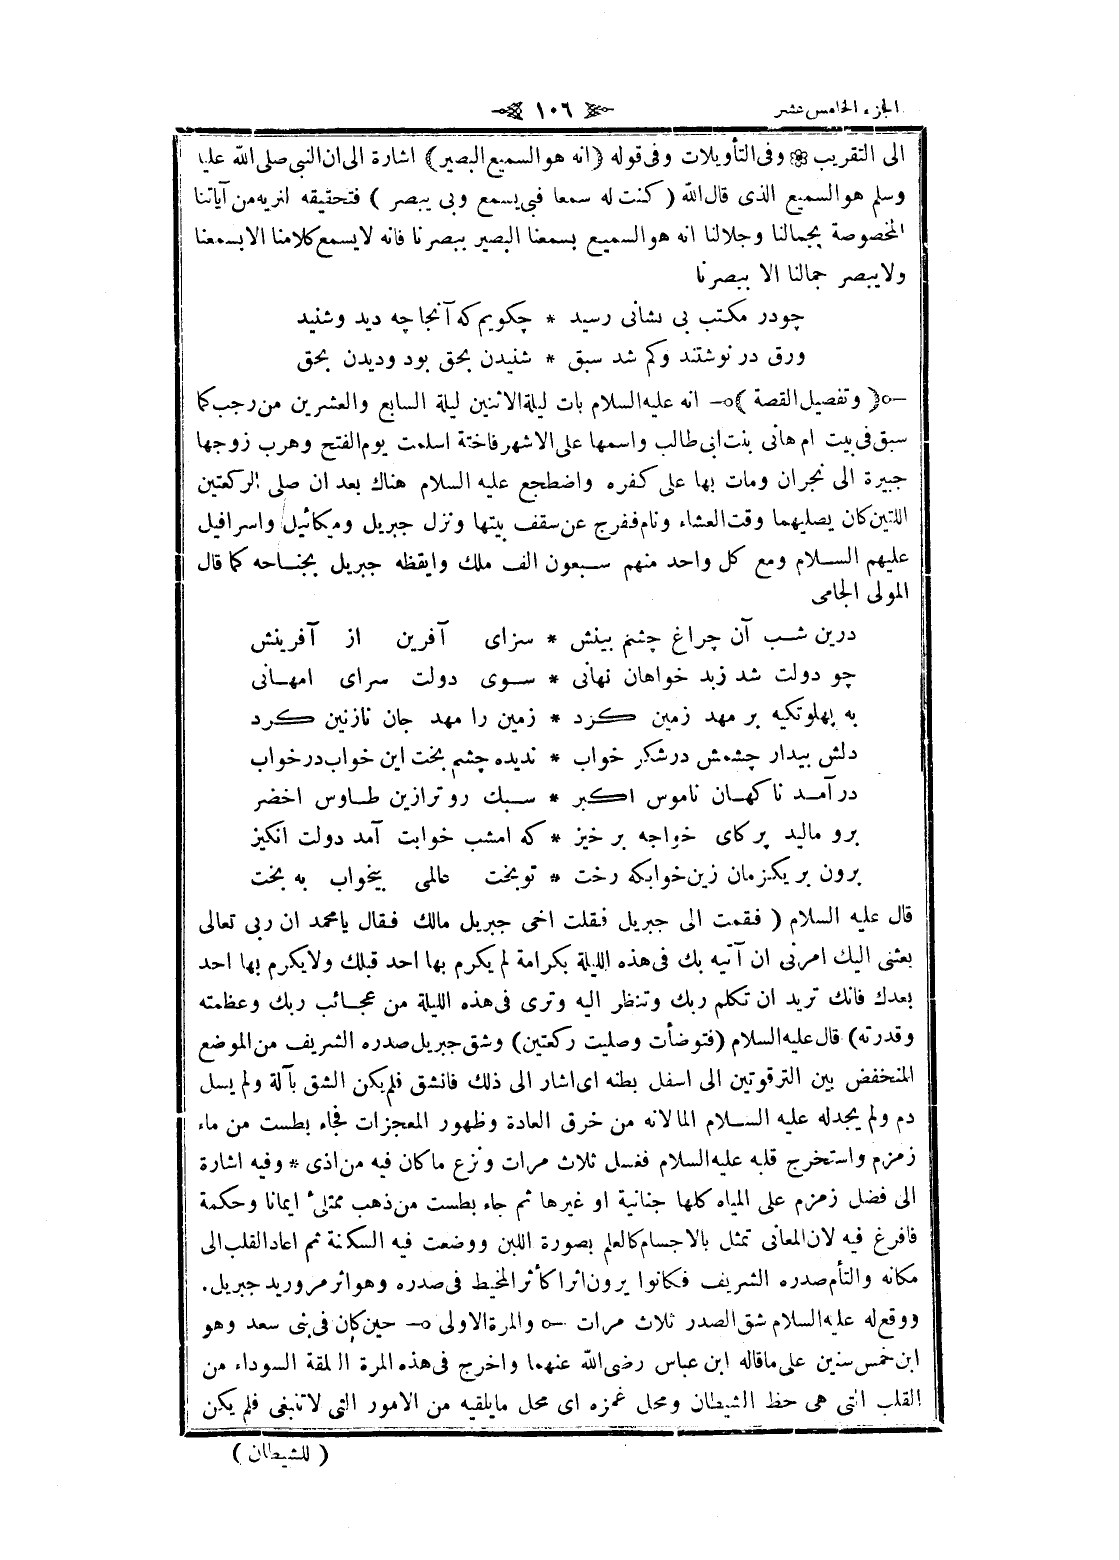 الجزء الخامس عشر
١٠٦
الى التقريب ❀ وفى التأويلات وفى قوله (انه هو السميع البصير) اشارة الى ان النبى صلى الله عليه
وسلم هو السميع الذى قال الله ( كنت له سمعا فبى يسمع وبى يبصر ) فتحقيقه لنريه من آياتنا
المخصوصة بجمالنا وجلالنا انه هو السميع بسمعنا البصير ببصرنا فانه لايسمع كلامنا الابسمعنا
ولايبصر جمالنا الا ببصرنا
چودر مكتب بى نشانى رسيد * چكويم كه آنجا چه ديد وشنيد
ورق در نوشتند وكم شد سبق * شنيدن بحق بود وديدن بحق
( وتفصيل القصة ) انه عليه السلام بات ليلة الاثنين ليلة السابع والعشرين من رجب كما
سبق فى بيت ام هانى بنت ابى طالب واسمها على الاشهر فاختة اسلمت يوم الفتح وهرب زوجها
جبيرة الى نجران ومات بها على كفره واضطجع عليه السلام هناك بعد ان صلى الركعتين
اللتين كان يصليهما وقت العشاء ونام ففرج عن سقف بيتها ونزل جبريل وميكائيل واسرافيل
عليهم السلام ومع كل واحد منهم سبعون الف ملك وايقظه جبريل بجناحه كما قال
المولى الجامى
درين شب آن چراغ چشم بينش * سزاى آفرين از آفرينش
چو دولت شد زبد خواهان نهانى * سوى دولت سراى امهانى
به پهلوتكيه بر مهد زمين كرد * زمين را مهد جان نازنين كرد
دلش بيدار چشمش درشكر خواب * نديده چشم بخت اين خواب در خواب
در آمد ناكهان ناموس اكبر * سبك رو ترازين طاوس اخضر
برو ماليد پر كاى خواجه بر خيز * كه امشب خوابت آمد دولت انكيز
برون بر يكزمان زين خوابكه رخت * توبخت عالمى بيخواب به بخت
قال عليه السلام ( فقمت الى جبريل فقلت اخى جبريل مالك فقال يامحمد ان ربى تعالى
بعثنى اليك امرنى ان آتيه بك فى هذه الليلة بكرامة لم يكرم بها احد قبلك ولايكرم بها احد
بعدك فانك تريد ان تكلم ربك وتنظر اليه وترى فى هذه الليلة من عجائب ربك وعظمته
وقدرته) قال عليه السلام (فتوضأت وصليت ركعتين) وشق جبريل صدره الشريف من الموضع
المنخفض بين الترقوتين الى اسفل بطنه اى اشار الى ذلك فانشق فلم يكن الشق بآلة ولم يسل
دم ولم يجد له عليه السلام الما لانه من خرق العادة وظهور المعجزات فجاء بطست من ماء
زمزم واستخرج قلبه عليه السلام فغسل ثلاث مرات ونزع ما كان فيه من اذى * وفيه اشارة
الى فضل زمزم على المياه كلها جنانية او غيرها ثم جاء بطست من ذهب ممتلئ ايمانا وحكمة
فافرغ فيه لان المعانى تمثل بالاجسام كالعلم بصورة اللبن ووضعت فيه السكنة ثم اعاد القلب الى
مكانه والتأم صدره الشريف فكانوا يرون اثرا كأثر المخيط فى صدره وهو اثر مرور يد جبريل.
ووقع له عليه السلام شق الصدر ثلاث مرات والمرة الاولى حين كان فى بنى سعد وهو
ابن خمس سنين على ماقاله ابن عباس رضى الله عنهما واخرج فى هذه المرة العلقة السوداء من
القلب التى هى حظ الشيطان ومحل غمزه اى محل مايلقيه من الامور التى لاتنبغى فلم يكن
( للشيطان )